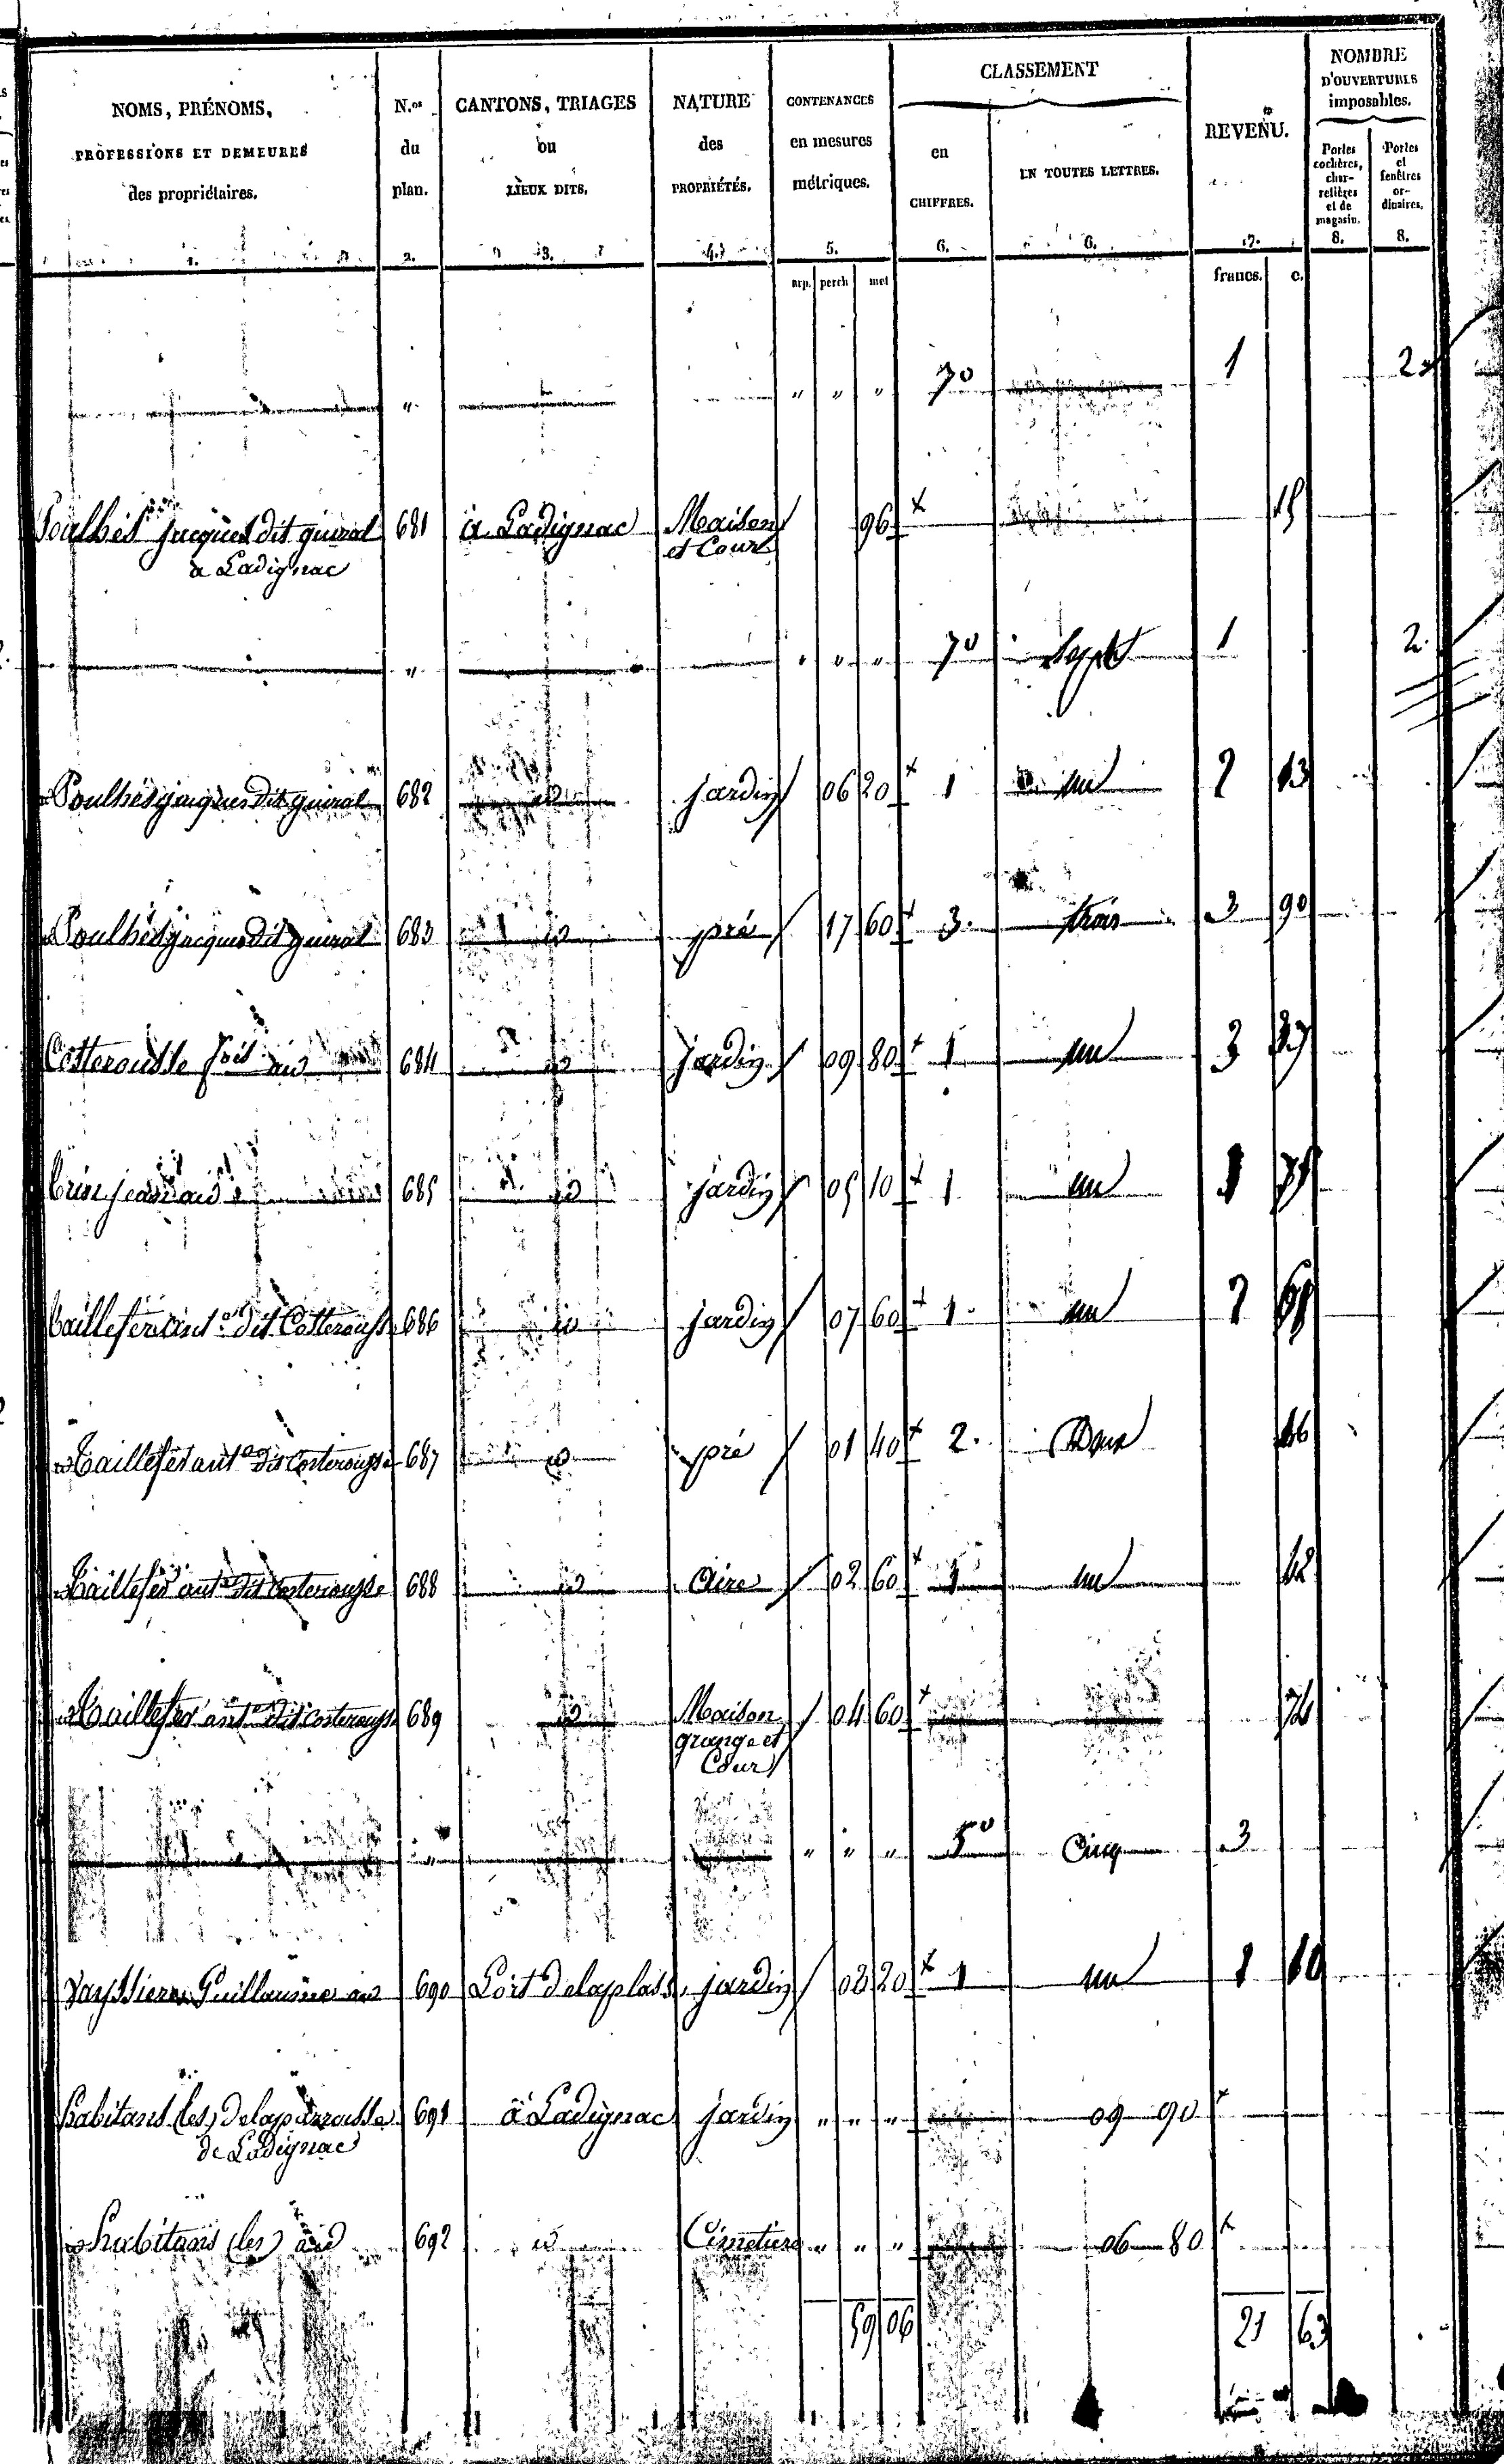 NOMS, PRÉNOMS, PROFESSIONS ET DEMEURES des propriétaires. 1.
N.os du plan. 2.
CANTONS, TRIAGES ou LIEUX DITS. 3.
NATURE des PROPRIÉTÉS. 4.
CONTENANCES en mesures métriques. 5.
CLASSEMENT
en CHIFFRES. 6.
EN TOUTES LETTRES. 6.
REVENU. 7.
NOMBRE D'OUVERTURES imposables.
Portes cochères, charretières et de magasin. 8.
Portes et fenêtres ordinaires. 8.
arp. perch met francs. c.
" " " " 7º 1 2
Poulhès jacques dit guiral 681 à Ladignac Maison 96 15
à Ladignac et Cour
" " " " 7º Sept 1 2
Poulhès jacques dit guiral 682 id jardin 06 20 1 un 2 13
Poulhès jacques dit guiral 683 id pré 17 60 3 trois 3 90
Costerousse 684 id jardin 09 80 1 un 3 37
jean 685 id jardin 05 10 1 un 1 75
Taillefer dit Costerousse 686 id jardin 07 60 1 un 2
Taillefer ant.e dit Costerousse 687 id pré 01 40 2 Deux 46
Taillefer ant.e dit Costerousse 688 id Aire 02 60 1 un 42
Taillefer ant.e dit Costerousse 689 id Maison 04 60 74
grange et
Cour
" " " " 5º Cinq 3
Vayssiere Guillaume 690 jardin 03 20 1 un 1 10
habitans (les) de la parroisse 691 à Ladignac jardin " " " 09 90
de Ladignac
habitans (les) 692 id Cimetiere " " " 06 80
59 06 21 63